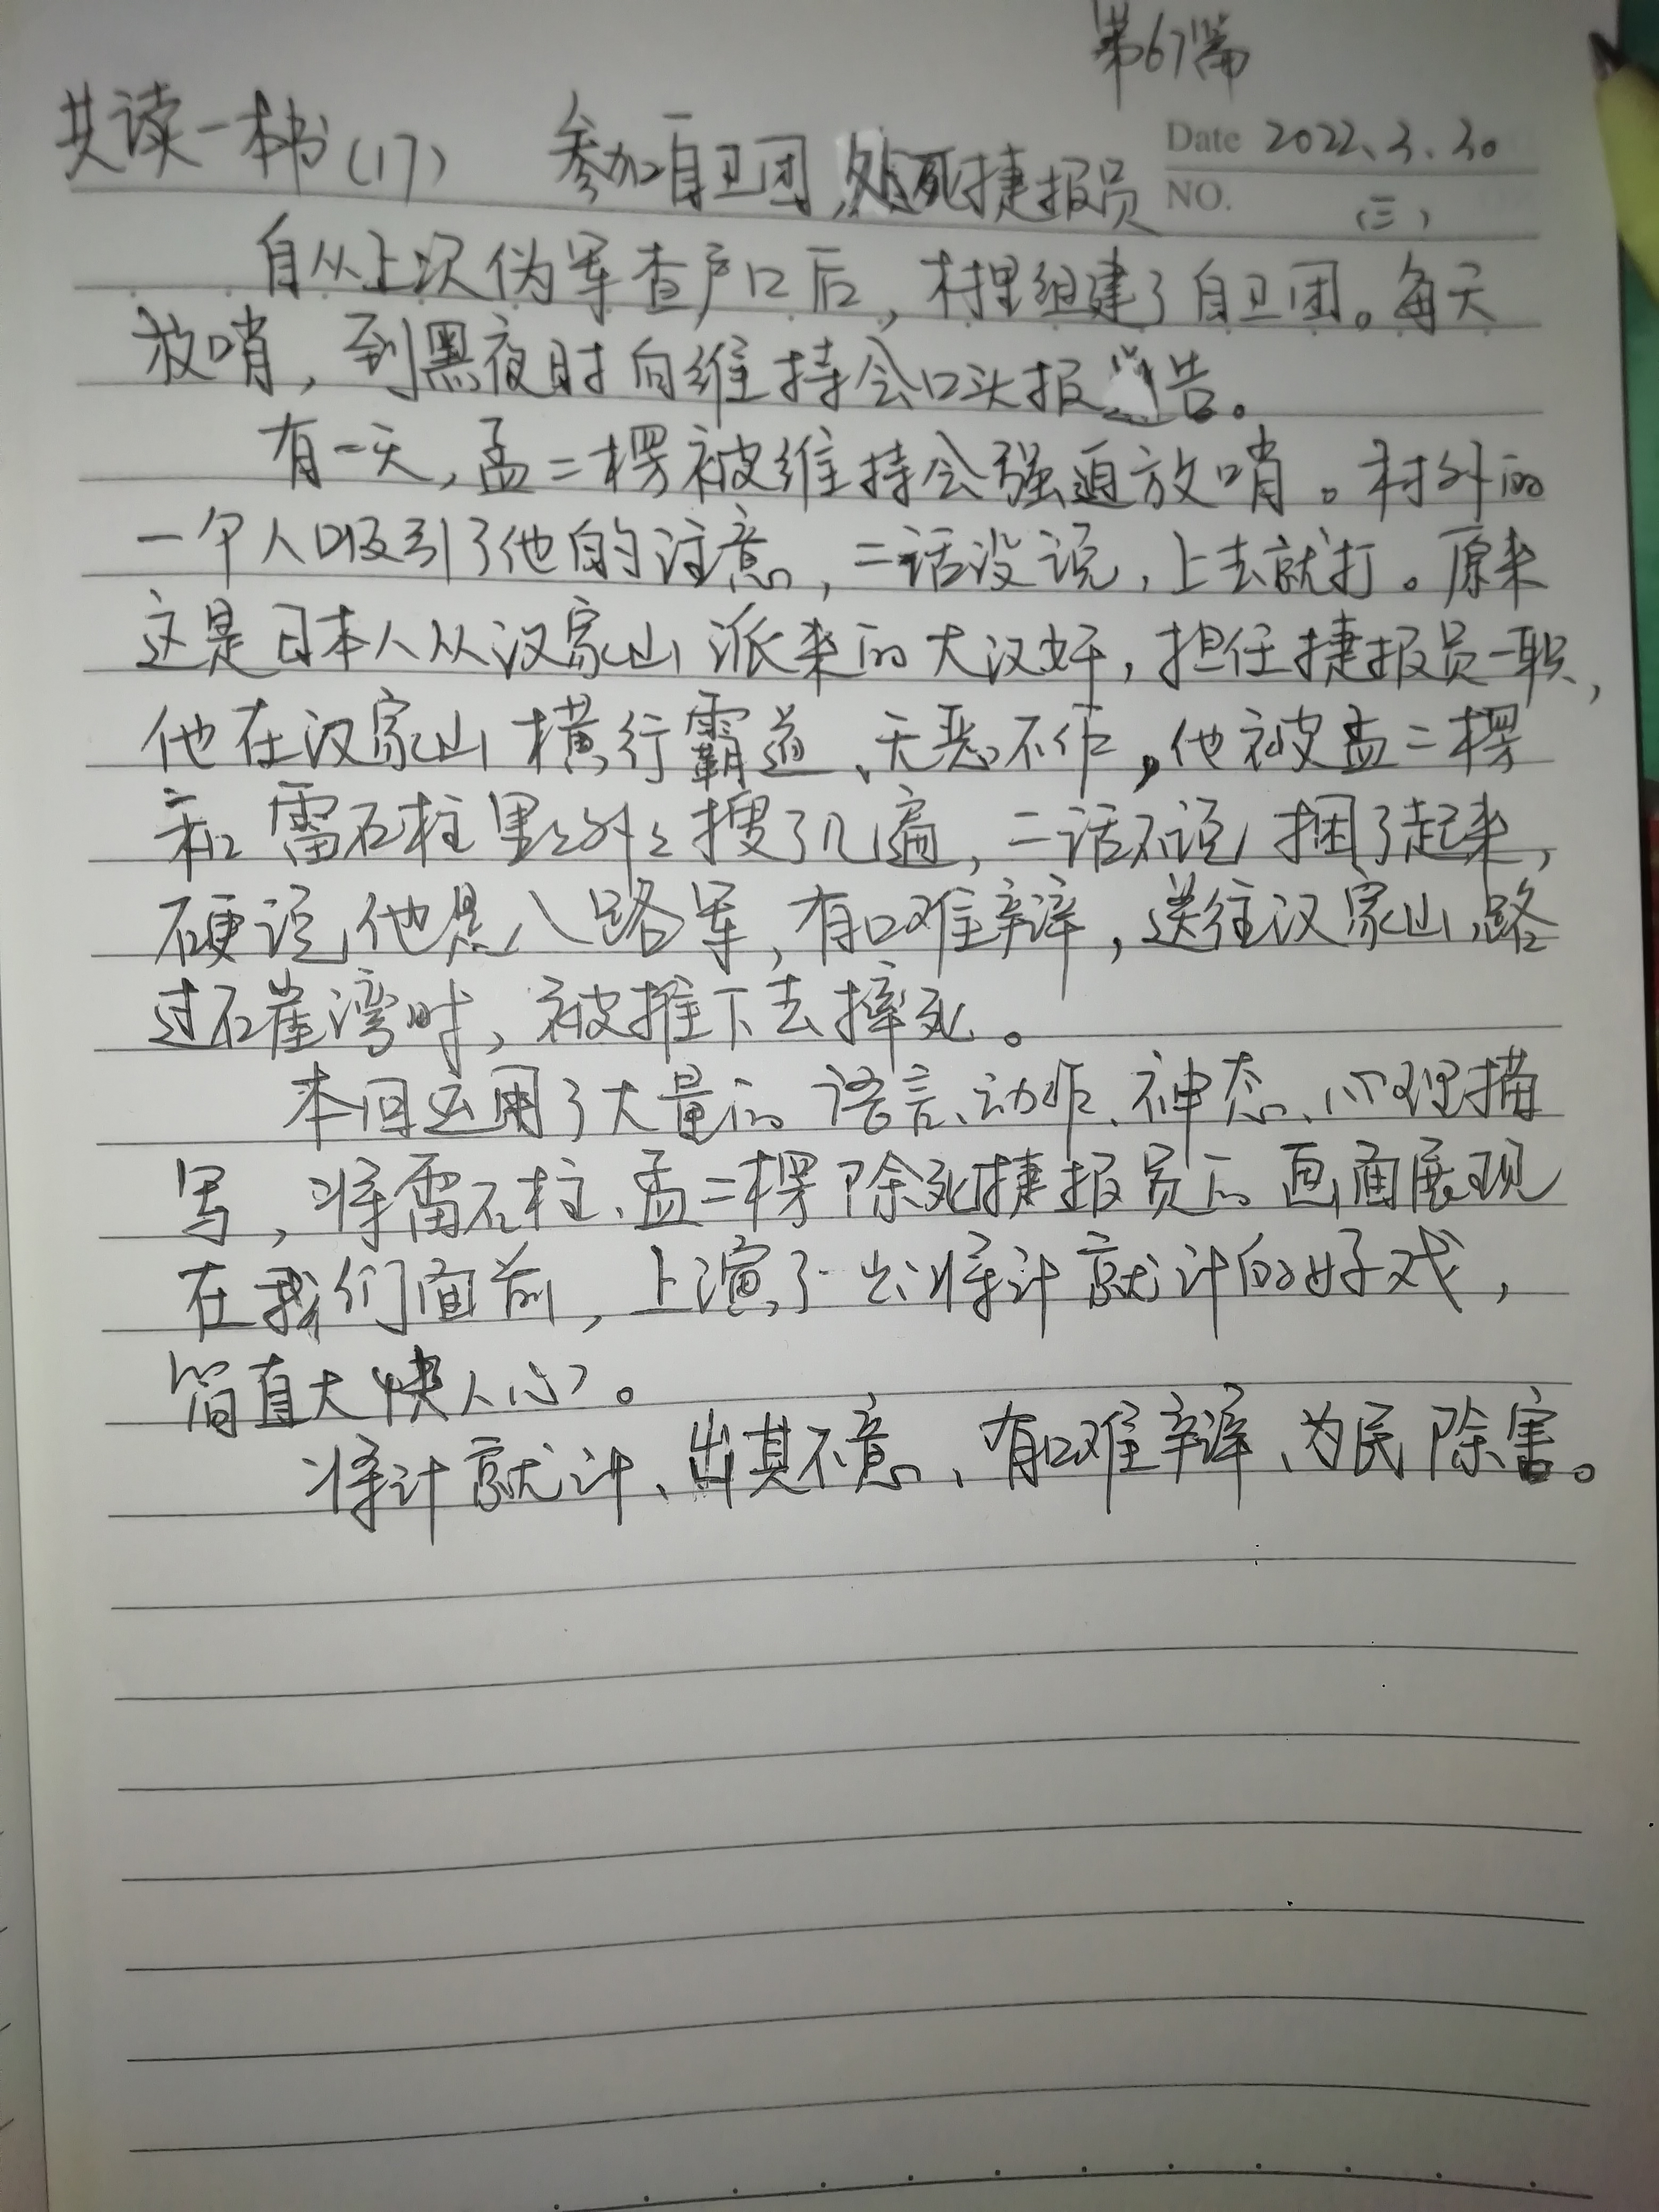 第67篇
共读一本书(17) 参加自卫团,处死捷报员
Date 2022.3.30
NO. (三)
自从上次伪军查户口后,村里组建了自卫团。每天
放哨,到黑夜时向维持会口头报告。
有一天,孟二楞被维持会强迫放哨。村外的
一个人吸引了他的注意,二话没说,上去就打。原来
这是日本人从汉家山派来的大汉奸,担任捷报员一职,
他在汉家山横行霸道、无恶不作,他被孟二楞
和雷石柱里里外外搜了几遍,二话不说捆了起来,
硬说他是八路军,有口难辩,送往汉家山,路
过石崖湾时,被推下去摔死。
本回运用了大量的语言、动作、神态、心理描
写,将雷石柱、孟二楞除死捷报员的画面展现
在我们面前,上演了一出将计就计的好戏,
简直大快人心。
将计就计、出其不意、有口难辩、为民除害。